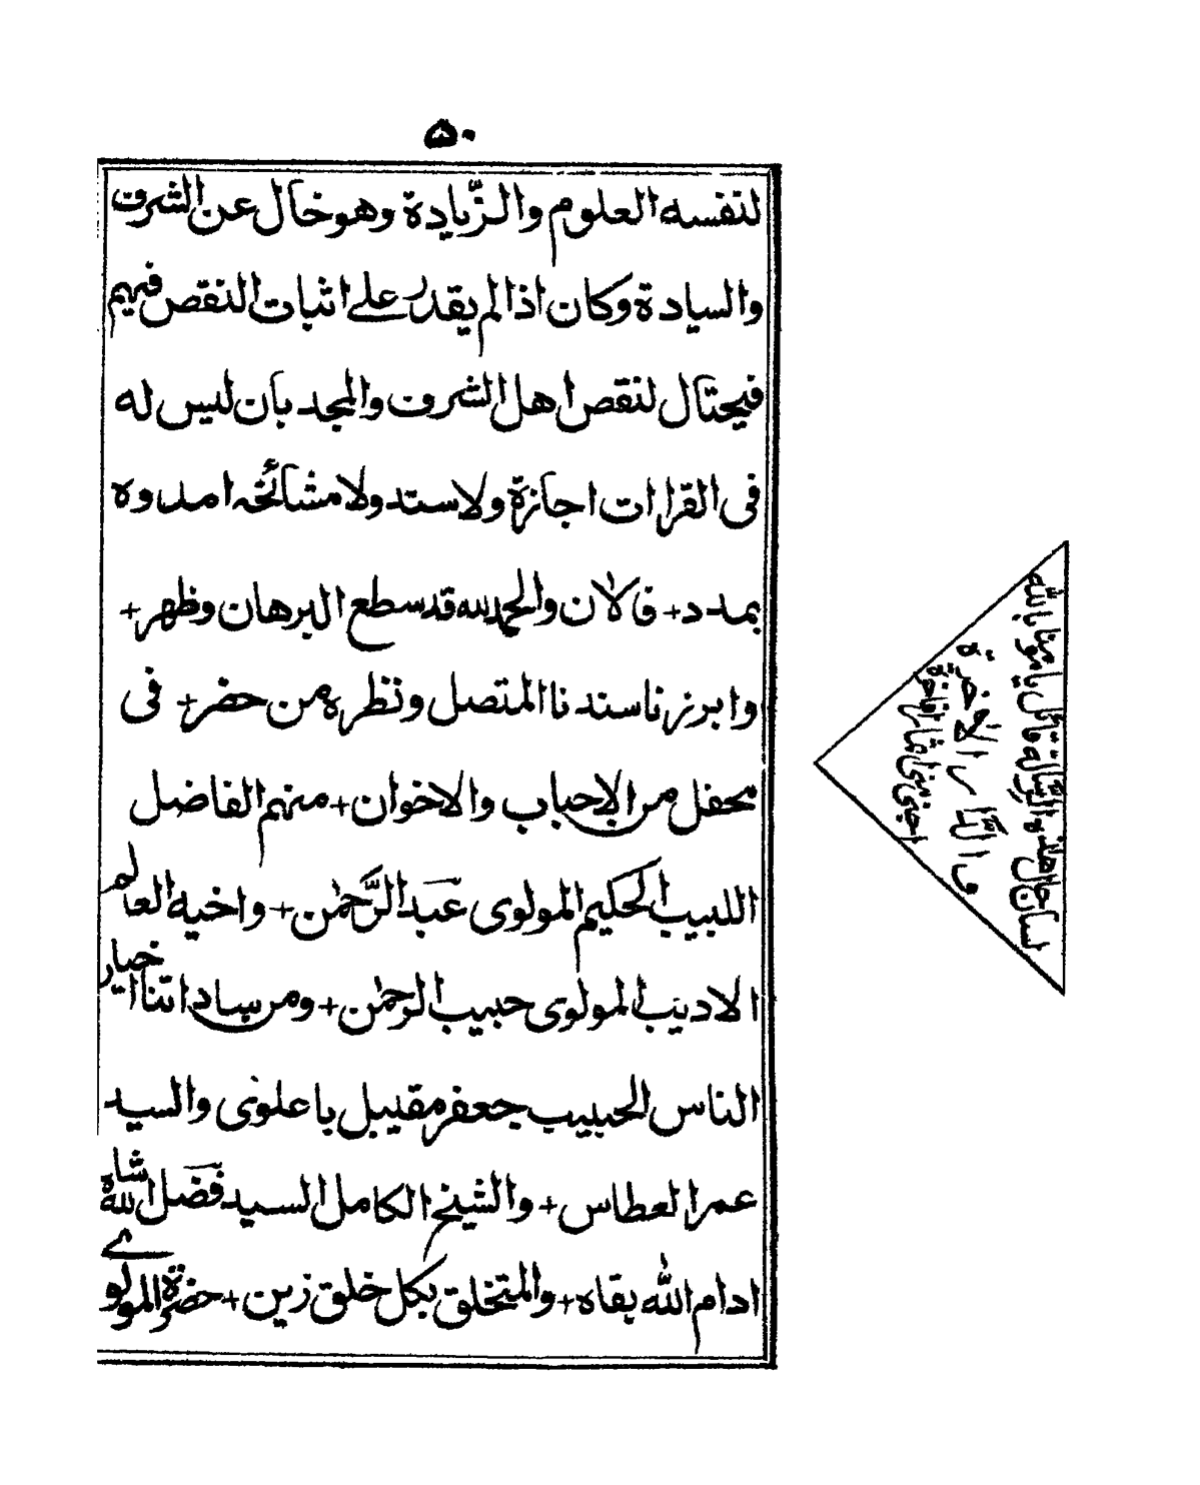 ۵۰
لنفسه العلوم والزّيادة وهو خال عن الشرف
والسيادة وكان اذا لم يقدر على اثبات النقص فيهم
فيحتال لنقص اهل الشرف والمجد بان ليس له
فى القراات اجازة ولا سند ولا مشائخه امدوه
بمدد + فالان والحمد لله قد سطع البرهان وظهر +
وابرزنا سندنا المتصل ونظره من حضر + فى
محفل من الاحباب والاخوان + منهم الفاضل
اللبيب الحكيم المولوى عبد الرَّحمٰن + واخيه العالم
الاديب المولوى حبيب الرحمٰن + ومن ساداتنا اخيار
الناس الحبيب جعفر مقيبل باعلوى والسيد
عمر العطاس + والشيخ الكامل السيد فضل الله شاه
ادام الله بقاه + والمتخلق بكل خلق زين + حضرة المولوے